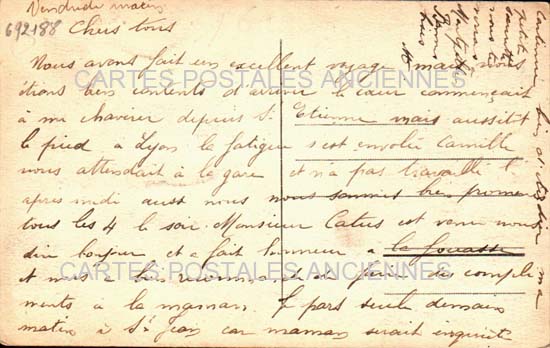 Vendredi matin
692188
Chers tous
Nous avons fait un excellent voyage mais nous
étions bien contents d'arriver le cœur commençait
à me chavirer depuis St Etienne mais aussitôt
le pied à Lyon la fatigue s'est envolée Camille
nous attendait à la gare et n'a pas travaillé l'
après midi aussi nous nous sommes bien promené
tous les 4 le soir. Monsieur Catus est venu nous
dire bonjour et a fait honneur à la fouasse
et nous a bien recommandé de faire ses compli
ments à la maman. Je pars seule demain
matin à St Jean car maman serait inquiète
CARTES POSTALES ANCIENNES
CARTES POSTALES ANCIENNES